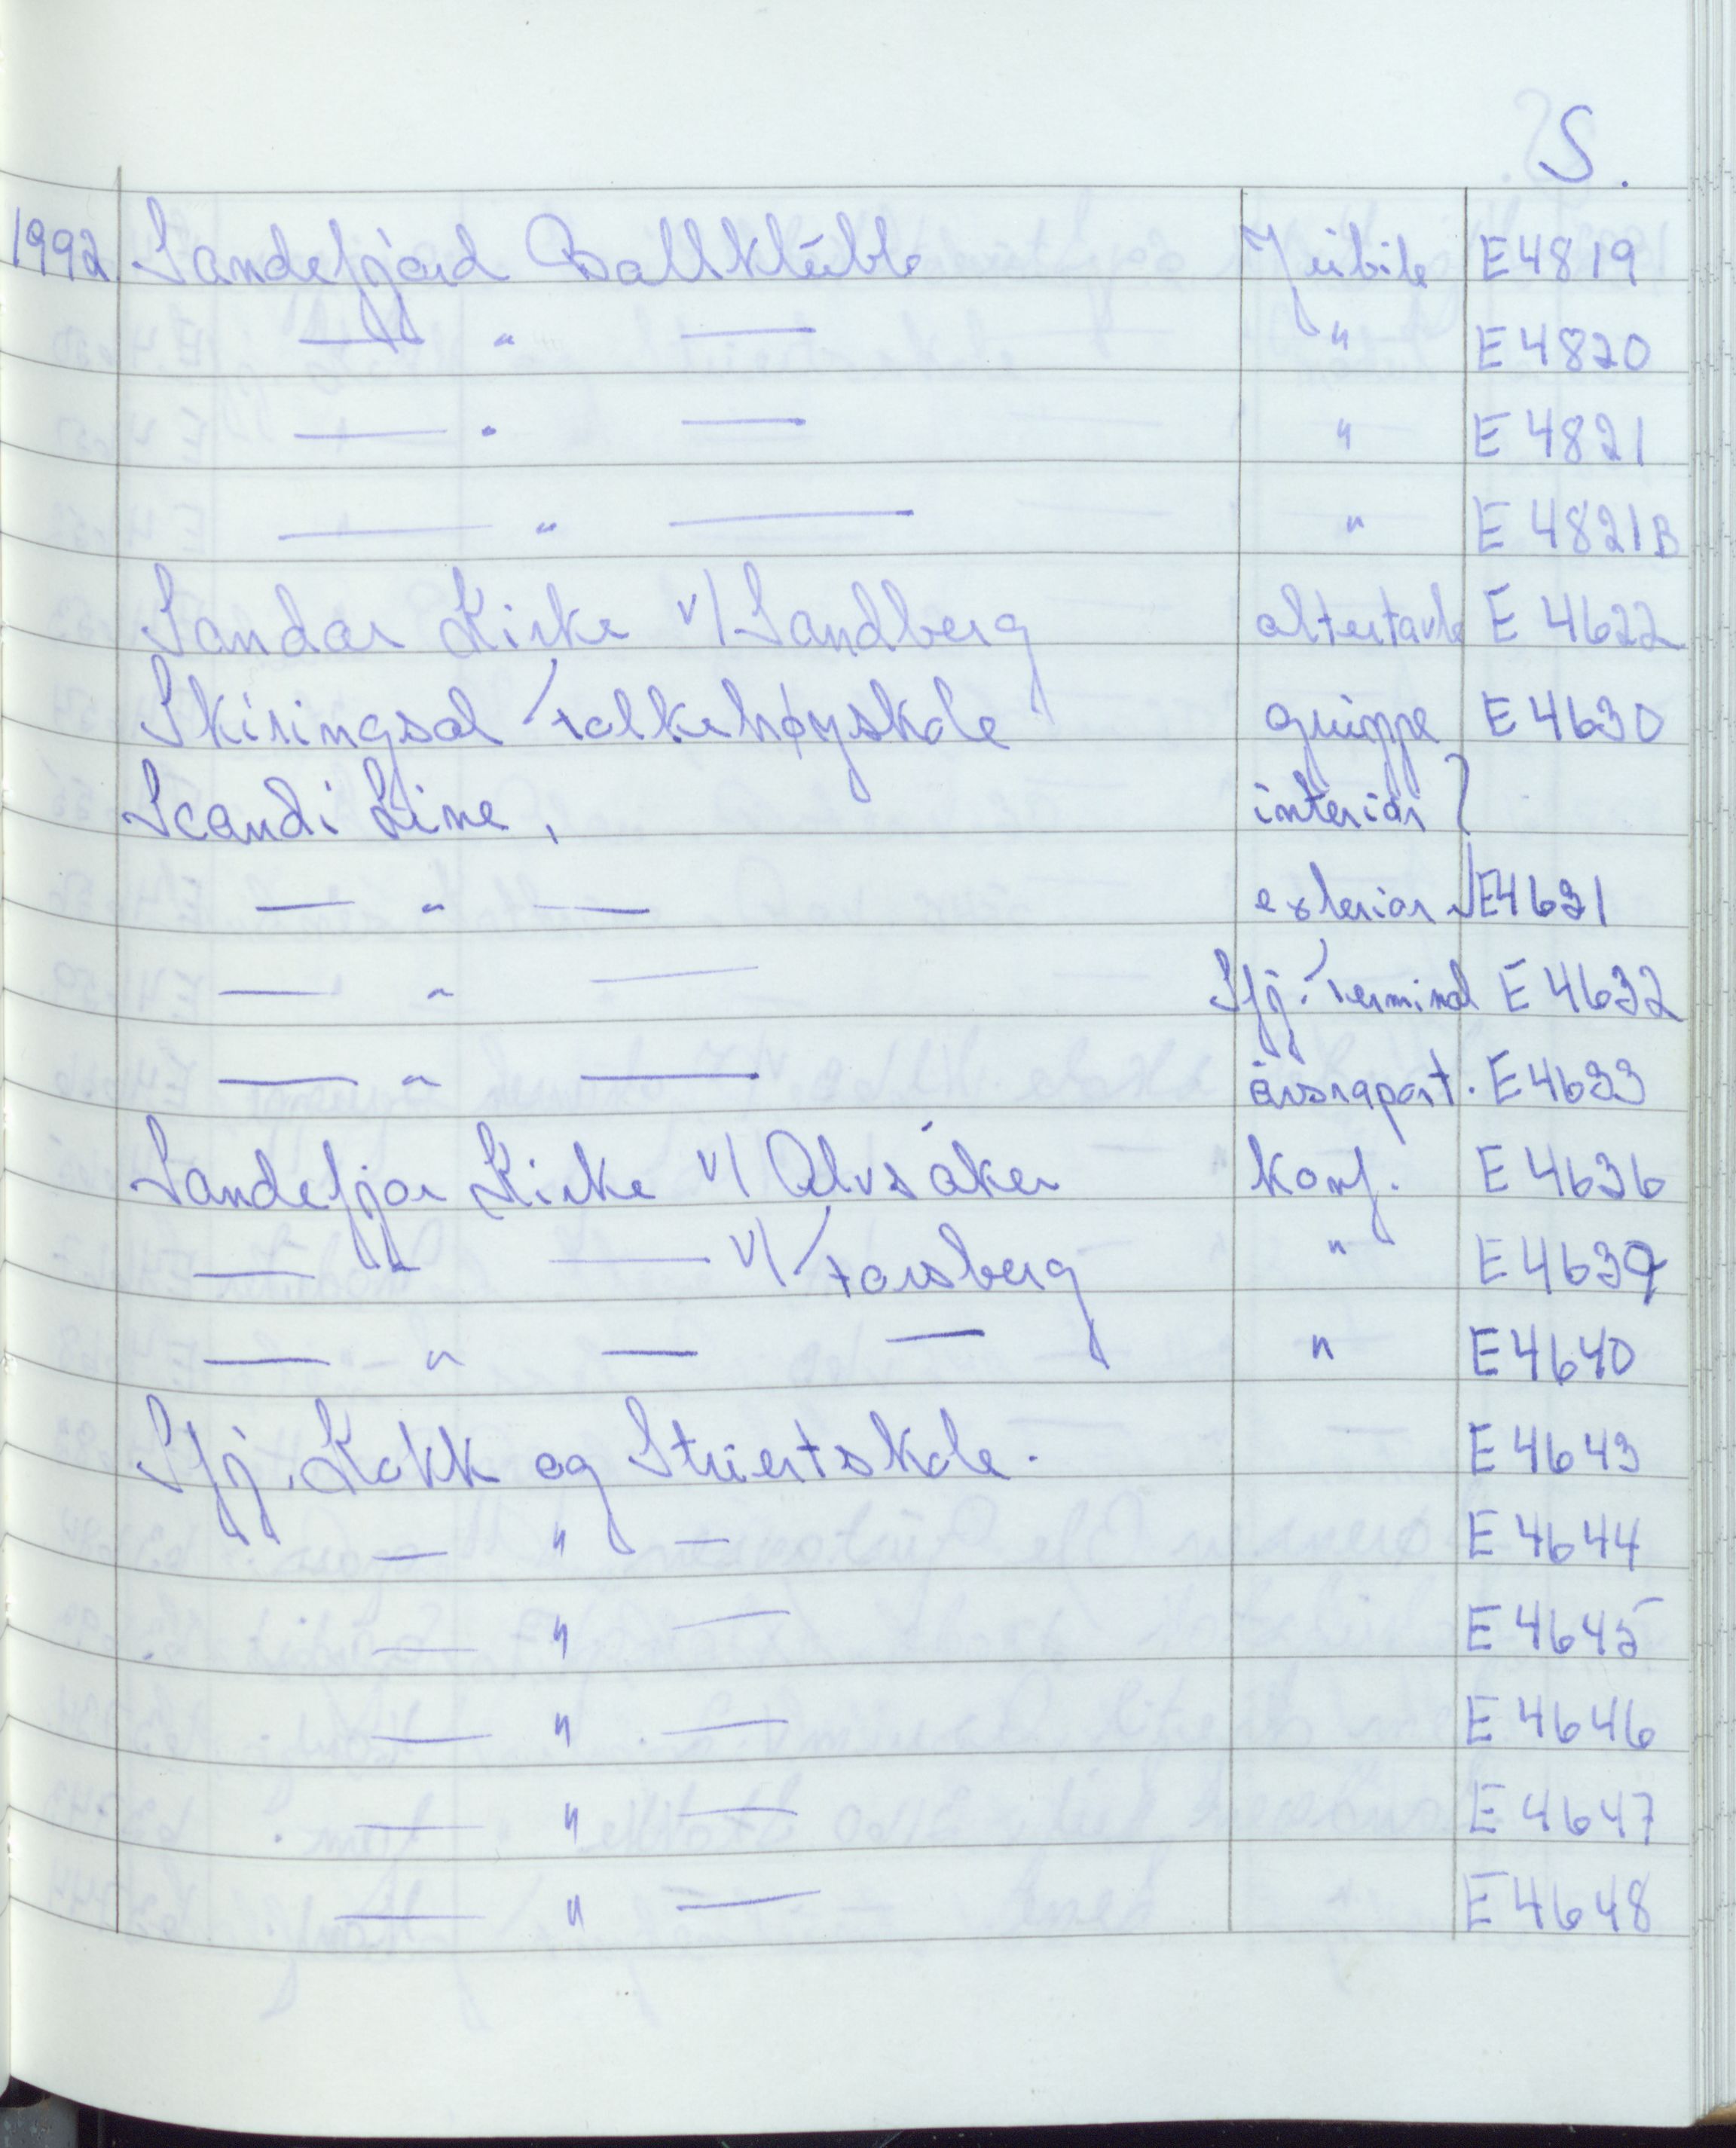 S.
1992. Sandefjord Ballklubb Jubile E4819
— " — " E4820
— " — " E4821
— " — " E4821B
Sandar Kirke v/ Sandberg altertavle E 4622
Skiringsal Folkehøyskole gruppe E 4630
Scandi Line, interiør }
— " — exteriør E4631
— " — Sfj. Terminal E 4632
— " — årsraport. E 4633
Sandefjor Kirke v/ Alvsåker konf. E 4636
— " — v/ Forsberg " E 4639
— " — — " E4640
Sfj. Kokk og Stuertskole. E 4643
— " — E 4644
— " — E 4645
— " — E 4646
— " — E 4647
— " — E 4648